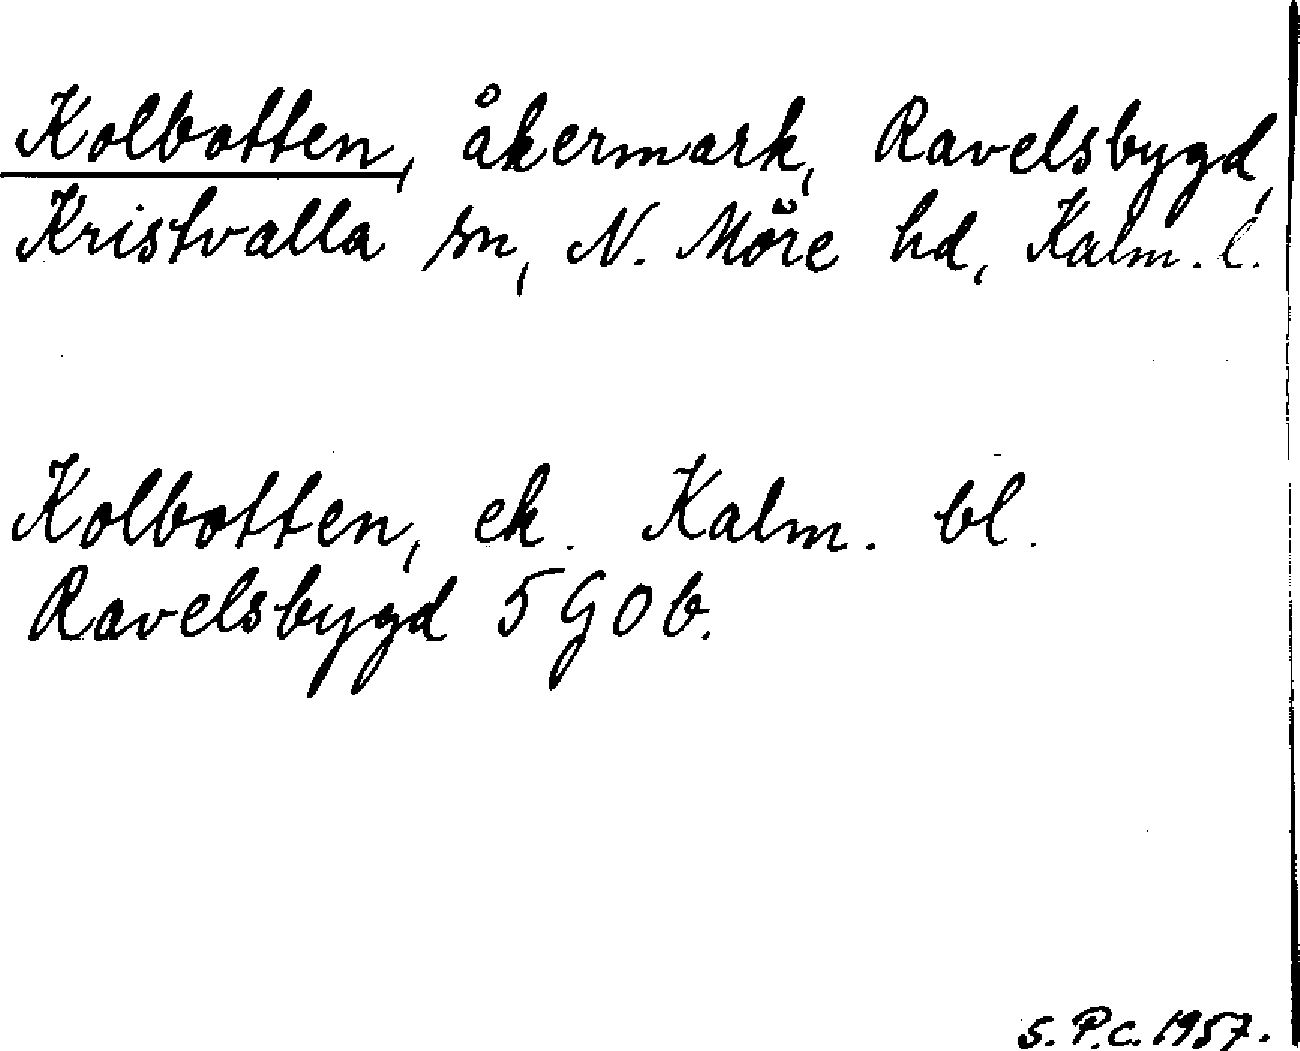 Kolbotten, åkermark, Ravelsbygd,
Kristvalla sn, N. Möre hd, Kalm. l.
Kolbotten, ek. Kalm. bl.
Ravelsbygd 5 G 0 b.
S. P.c. 1957.